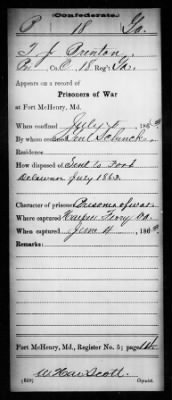 Confederate.
P 18 Ga.
T. J. Printon
Co. 18 Reg't Ga.
Appears on a record of
Prisoners of War
at Fort McHenry, Md.
When confined July 186
By whom confined Schenck
Residence
How disposed of Sent to Fort
Delaware July 1863.
Character of prisoner Prisoner of war
Where captured Harpers Ferry Va
When captured June 186
Remarks:
Fort McHenry, Md., Register No. 5; page
Scott
Copyist.